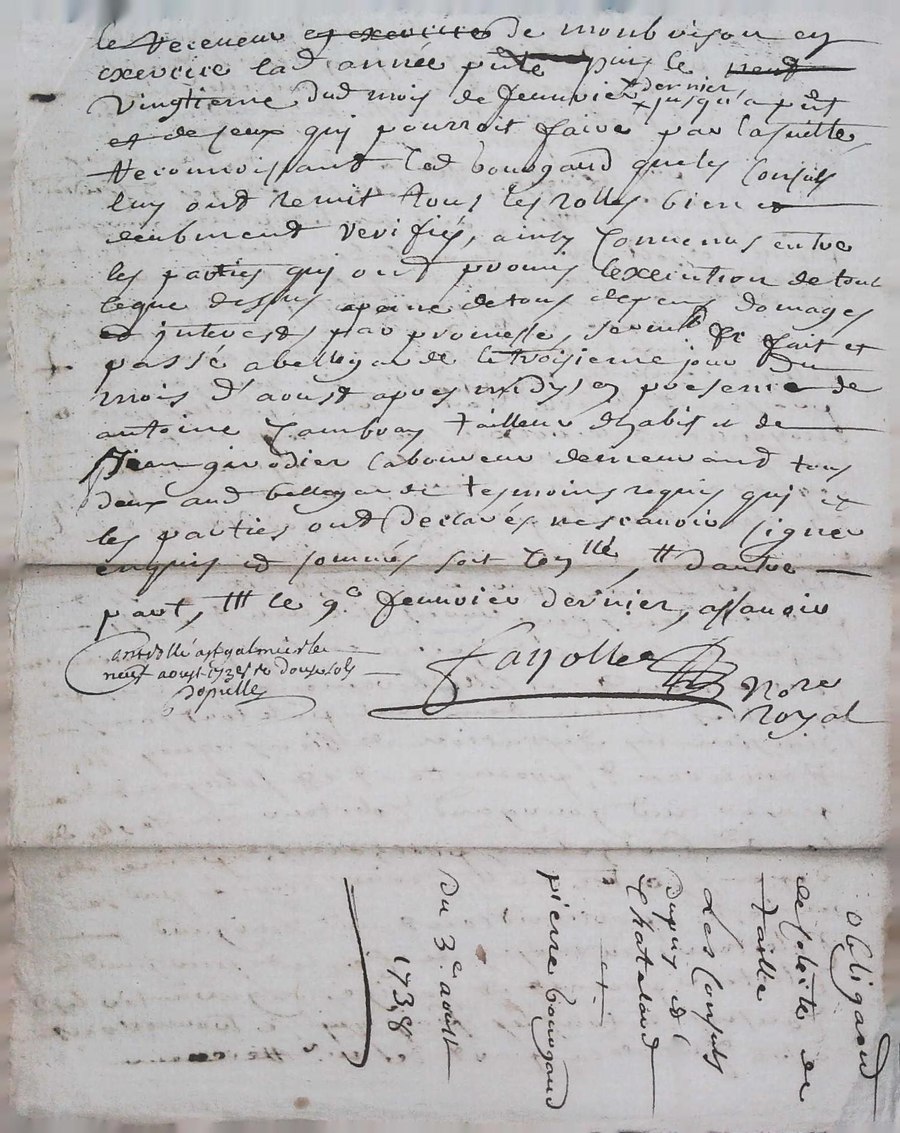 le Receveur et exercice de monbrison en
exercice lad année pnte puis le neuf
vingtieme dud mois de Jeanvier dernier jusqu'a pnt
et de ceux qui pourroit faire par la suitte
Reconnoissant led bourgand que les Consuls
luy ont remit tous les rolles bien et
deubment verifiés, ainsy convenus entre
les parties qui ont promis l'execution de tout
ceque dessus apeine de tous depens domages
et interests par promesse, sermt & fait et
passé abellegarde le troisieme jour Du
mois d'aoust apres midy en presence de
antoine Cambray tailleur dhabis et de
Jean girodier laboureur demeurant tous
deux aud bellegarde tesmoins requis qui et
les parties ont declarés ne scavoir signer
enquis et sommés soit
part, le 9e Jeanvier dernier, assavoir
Controllé a st galmier le
neuf aoust 1738 rs douze sols
Dopuille
fayolle
Nore
Royal
obligaõn
de cotte de
taille
Les Consuls
Dupuy et
Chateland
et
pierre bourgand
Du 3e août
1738